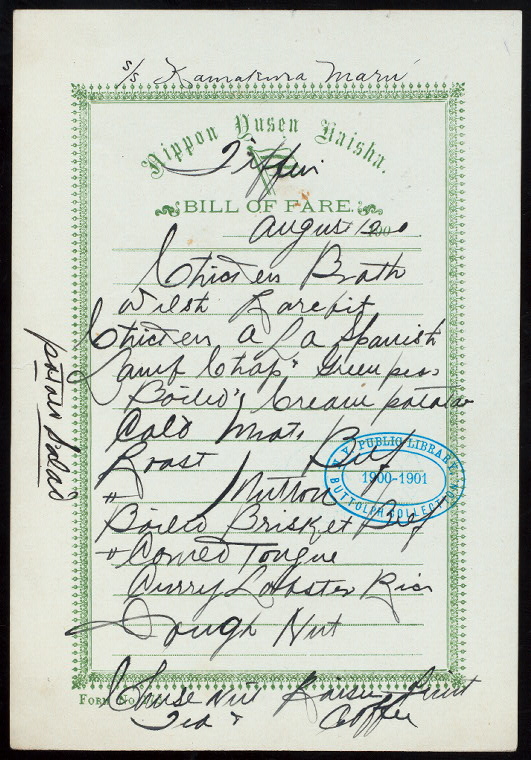 s/s Kamakura Maru
Nippon Yusen Kaisha.
Tiffin
BILL OF FARE.
August 12 1900
Chicken Broth
Welsh Rarebit
Chicken a La Spanish
Lamb Chop & Green peas
Boiled & Cream potatoe
Cold Meats
Roast Beef
" Mutton
Boiled Brisket Beef
" Corned Tongue
Curry Lobster Rice
Dough Nut
Cheese Nuts Raisin Fruit
Tea & Coffee
Form No.
potatoe Salad
N.Y. PUBLIC LIBRARY
1900-1901
BUTTOLPH COLLECTION